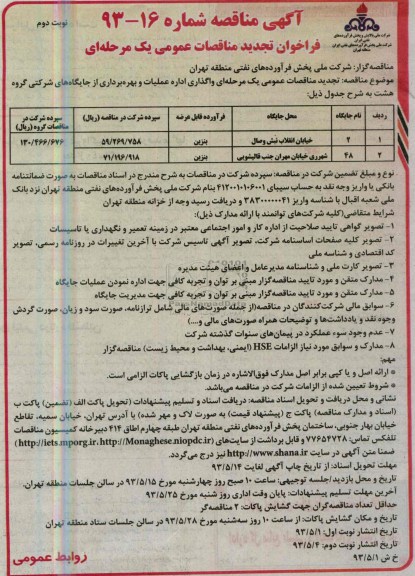 نوبت دوم
آگهی مناقصه شماره ۱۶-۹۳
فراخوان تجدید مناقصات عمومی یک مرحله‌ای
مناقصه‌گزار: شرکت ملی پخش فرآورده‌های نفتی منطقه تهران
موضوع مناقصه: تجدید مناقصات عمومی یک مرحله‌ای واگذاری اداره عملیات و بهره‌برداری از جایگاه‌های شرکتی گروه
هشت به شرح جدول ذیل:
ردیف نام جایگاه محل جایگاه فرآورده قابل عرضه سپرده شرکت در مناقصه (ریال) سپرده شرکت در مناقصات گروه (ریال)
۱ ۲ خیابان انقلاب نبش وصال بنزین ۵۹/۲۶۹/۷۵۸ ۱۳۰/۴۶۶/۶۷۶
۲ ۴۸ شهرری خیابان مهران جنب قالیشویی بنزین ۷۱/۱۹۶/۹۱۸
نوع و مبلغ تضمین شرکت در مناقصه: سپرده شرکت در مناقصات به شرح مندرج در اسناد مناقصات به صورت ضمانتنامه
بانکی یا واریز وجه نقد به حساب سیبای ۴۱۲۰۰۱۰۱۰۶۰۰۱ بنام شرکت ملی پخش فرآورده‌های نفتی منطقه تهران نزد بانک
ملی شعبه اقبال با شناسه واریز و دریافت رسید وجه از خزانه منطقه تهران
شرایط متقاضی (کلیه شرکت‌های توانمند با ارائه مدارک ذیل):
۱- تصویر گواهی تایید صلاحیت از اداره کار و امور اجتماعی معتبر در زمینه تعمیر و نگهداری یا تاسیسات
۲- تصویر کلیه صفحات اساسنامه شرکت، تصویر آگهی تاسیس شرکت با آخرین تغییرات در روزنامه رسمی، تصویر
کد اقتصادی و شناسه ملی
۳- تصویر کارت ملی و شناسنامه مدیرعامل و اعضای هیئت مدیره
۴- مدارک متقن و مورد تایید مناقصه‌گزار مبنی بر توان و تجربه کافی جهت اداره نمودن عملیات جایگاه
۵- مدارک متقن و مورد تایید مناقصه‌گزار مبنی بر توان و تجربه کافی جهت مدیریت جایگاه
۶- سوابق مالی شرکت‌کنندگان در مناقصه (از جمله صورت‌های مالی شامل ترازنامه، صورت سود و زیان، صورت گردش
وجوه نقد و یادداشت‌ها و توضیحات همراه صورت‌های مالی و....)
۷- عدم وجود سوء عملکرد در پیمان‌های سنوات گذشته شرکت
۸- مدارک و سوابق مورد نیاز الزامات HSE (ایمنی، بهداشت و محیط زیست) مناقصه‌گزار
مهم:
* ارائه اصل و یا کپی برابر اصل مدارک فوق‌الاشاره در زمان بازگشایی پاکات الزامی است.
* شروط تعیین شده از الزامات شرکت در مناقصه می‌باشد.
نشانی و محل دریافت و تحویل اسناد مناقصه: دریافت اسناد و تسلیم پیشنهادات (تحویل پاکت الف (تضمین) پاکت ب
(اسناد و مدارک مناقصه) پاکت ج (پیشنهاد قیمت) به صورت لاک و مهر شده) با آدرس تهران، خیابان سمیه، تقاطع
خیابان بهار جنوبی، ساختمان پخش فرآورده‌های نفتی منطقه تهران طبقه چهارم اطاق ۴۱۴ دبیرخانه کمیسیون مناقصات
تلفکس تماس: ۷۷۶۵۴۷۲۸ و قابل برداشت از سایت‌های (http://iets.mporg.ir،http://Monaghese.niopdc.ir)
ضمنا متن آگهی در سایت http://www.shana.ir نیز درج می‌گردد.
مهلت تحویل اسناد: از تاریخ چاپ آگهی لغایت ۹۳/۵/۱۴
تاریخ و محل بازدید/جلسه توجیهی: ساعت ۱۰ صبح روز چهارشنبه مورخ ۹۳/۵/۱۵ در سالن جلسات منطقه تهران.
آخرین مهلت تسلیم پیشنهادات: پایان وقت اداری روز شنبه مورخ ۹۳/۵/۲۵
حداقل تعداد مناقصه‌گران جهت گشایش پاکات: ۲ مناقصه‌گر
تاریخ و مکان گشایش پاکات: از ساعت ۱۰ روز سه‌شنبه مورخ ۹۳/۵/۲۸ در سالن جلسات ستاد منطقه تهران
تاریخ انتشار نوبت اول: ۹۳/۵/۱
تاریخ انتشار نوبت دوم: ۹۳/۵/۴
خ ش ۹۳/۵/۱
روابط عمومی